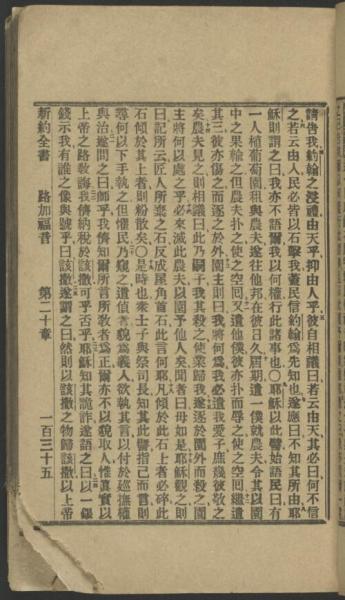 請告我約翰之浸禮由天乎抑由人乎彼自相議曰若云由天其必曰何不信
之若云由人民必皆以石擊我蓋民信約翰為先知也遂應曰不知其所由耶
穌則謂之曰我亦不語爾我以何權行此諸事也〇耶穌以此譬始語民曰有
一人植葡萄園租與農夫遂往他邦在彼日久屆期遣一僕就農夫令其以園
中之果輸之但農夫扑之使之空回又遣他僕彼亦扑而辱之使之空回繼遣
其三彼亦傷之而逐之於外園主則曰我將何為我必遣我愛子庶幾彼敬之
矣農夫見之則相議曰此乃嗣子我其殺之使業歸我遂逐於園外而殺之園
主將何以處之乎必來滅此農夫以園予他人矣聞者曰毋如是耶穌觀之則
曰記所云匠人所棄之石反成屋角首石此言何耶凡傾於此石上者必碎此
石傾於其上者則粉散矣〇是時也衆士子與祭司長知其此譬指己而言則
尋何以下手執之但懼民乃窺之遣偵者貌為義人欲執其言以付於巡撫權
與治遂問之曰師乎我儕知爾所言所敎者為正爾亦不以貌取人惟眞實以
上帝之路敎誨我儕納稅於該撒可乎否乎耶穌知其詭詐遂語之曰以一銀
錢示我有誰之像與號乎曰該撒遂謂之曰然則以該撒之物歸該撒以上帝
新約全書 路加福音 第二十章 一百三十五